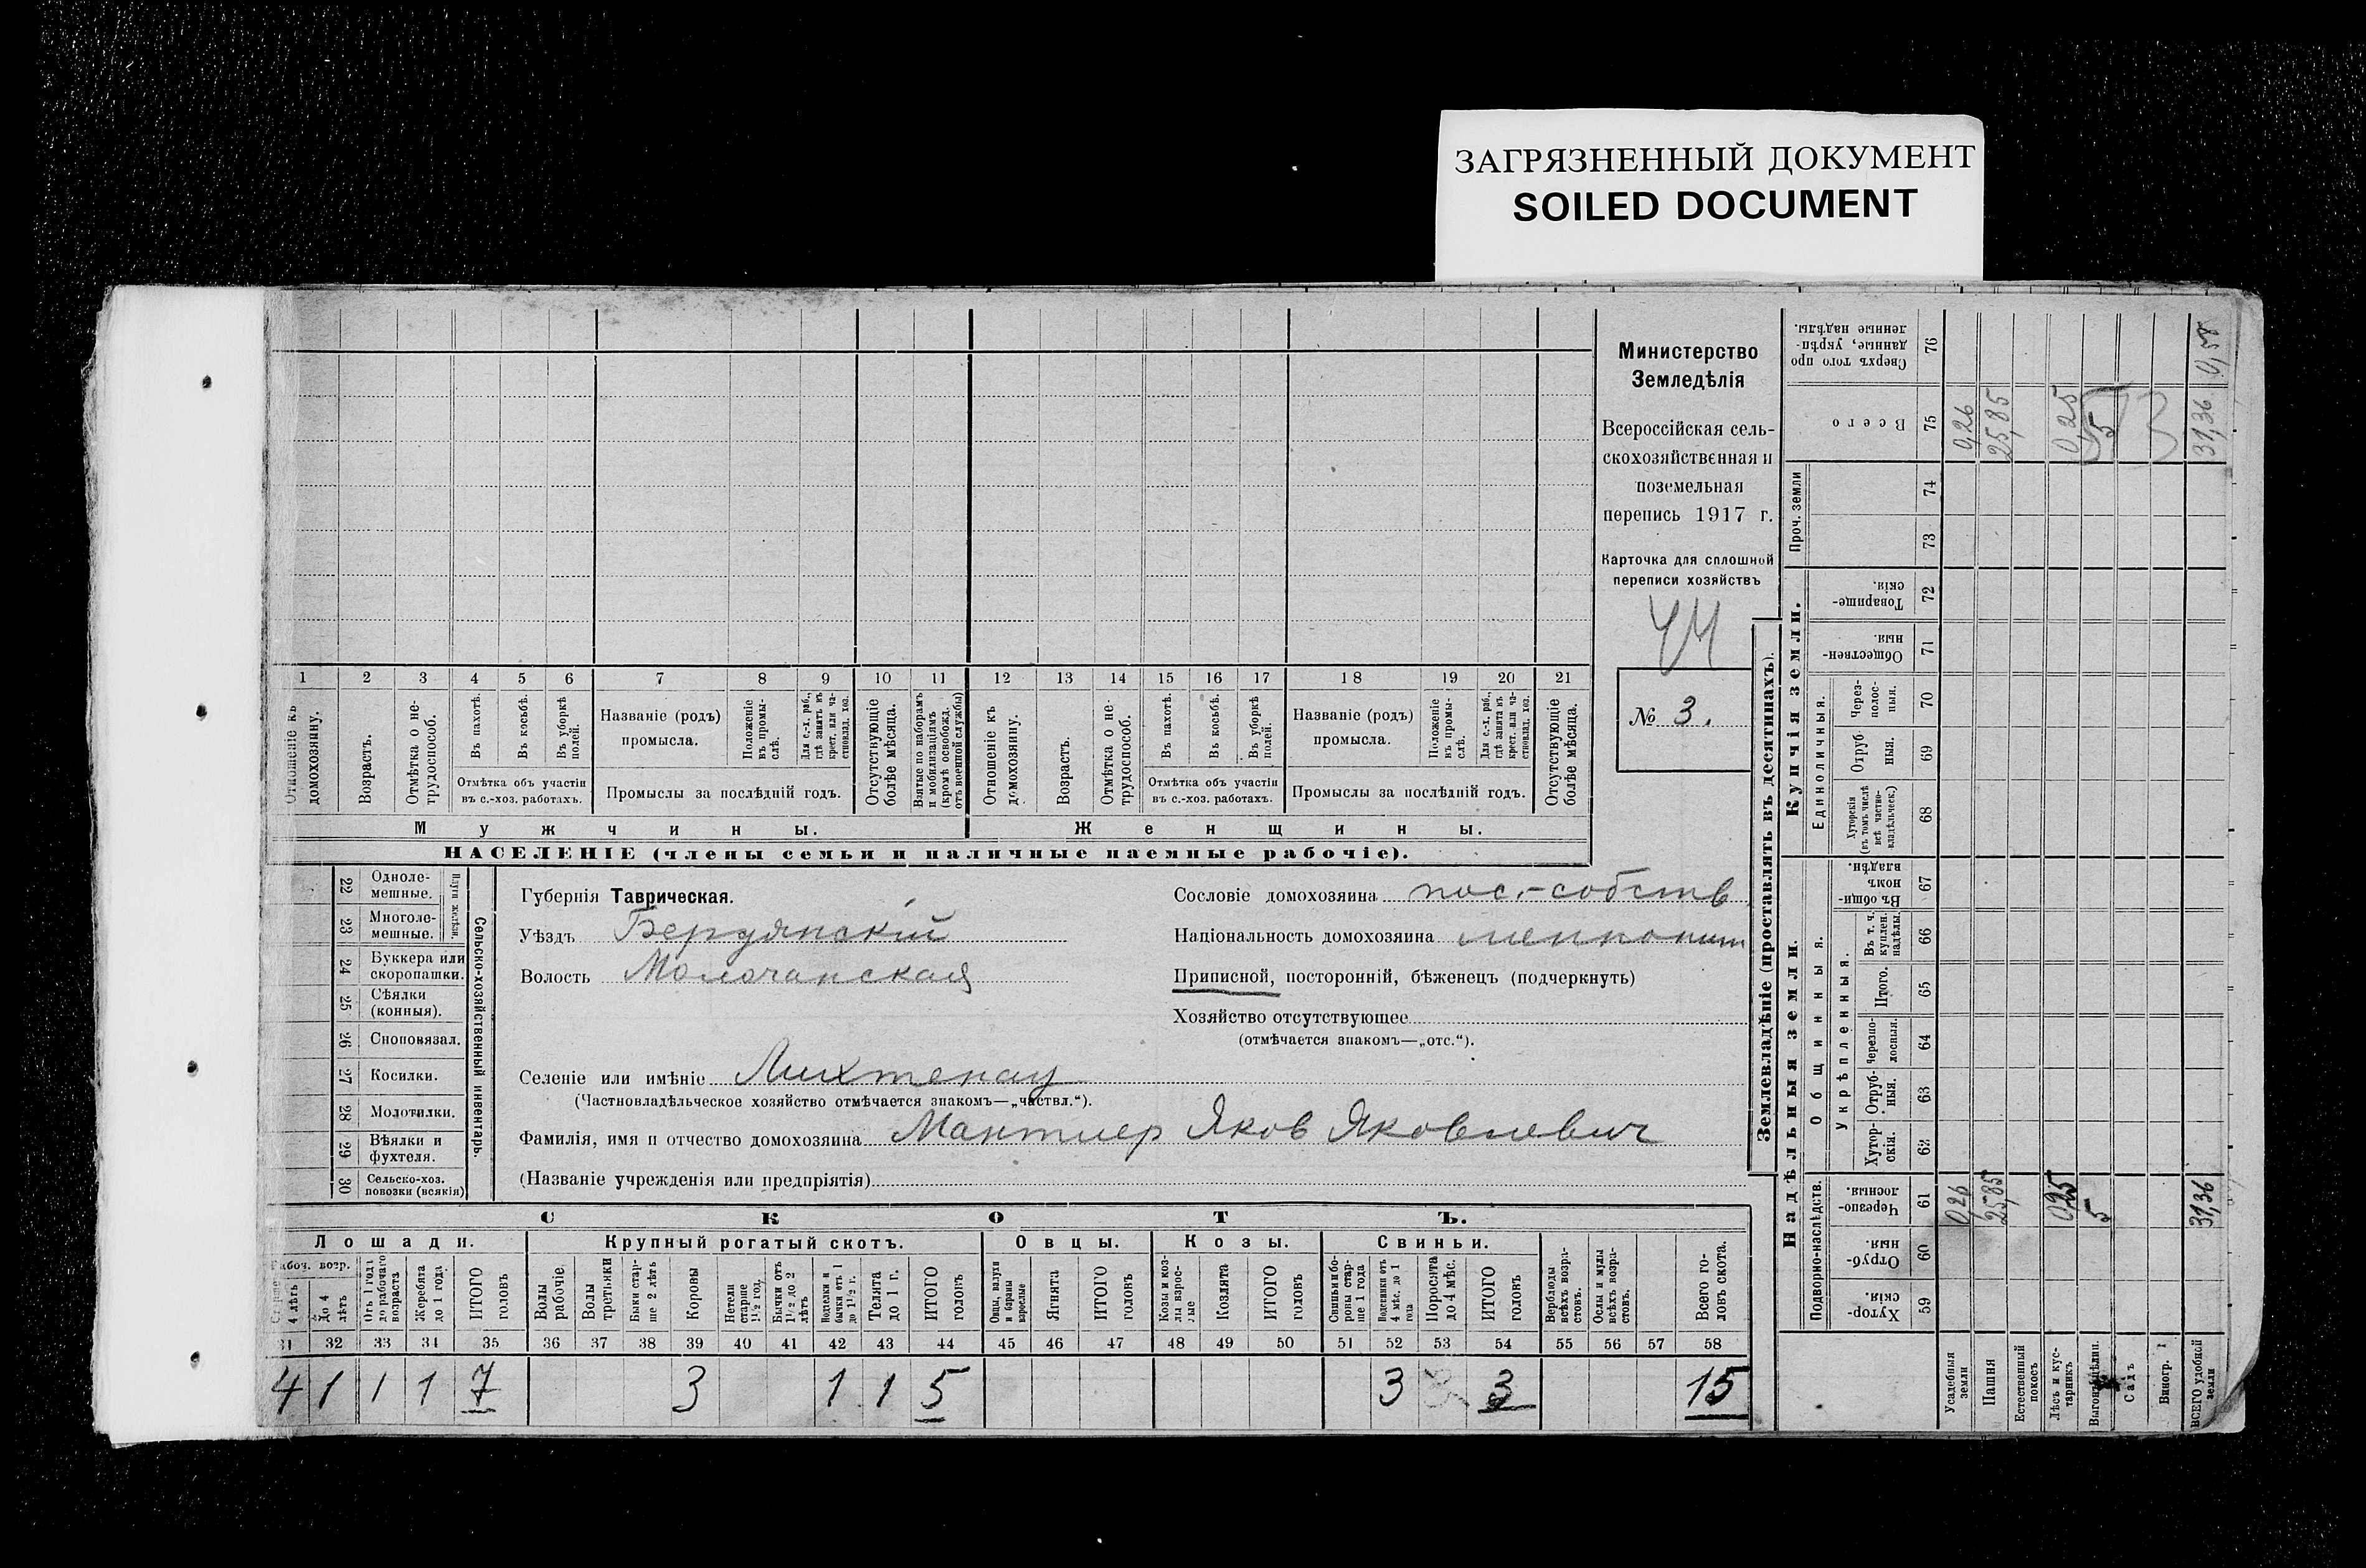 ЗАГРЯЗНЕННЫЙ ДОКУМЕНТ
SOILED DOCUMENT
Министерство
Земледѣлія
Всероссійская сель-
скохозяйственная и
поземельная
перепись 1917 г.
Карточка для сплошной
переписи хозяйствъ
№ 3.
1 2 3 4 5 6 7 8 9 10 11 12 13 14 15 16 17 18 19 20 21
Отношеніе къ домохозяину.
Возрастъ.
Отмѣтка о не-
трудоспособ.
Въ пахотѣ.
Въ косьбѣ.
Въ уборкѣ
полей.
Отмѣтка объ участіи
въ с.-хоз. работахъ.
Названіе (родъ)
промысла.
Положеніе
въ промы-
слѣ.
Для с.-х. раб.,
гдѣ занятъ въ
крест. или ча-
стновлад. хоз.
Промыслы за послѣдній годъ.
Отсутствующіе
болѣе мѣсяца.
Взятые по наборамъ
и мобилизаціямъ
(кромѣ освобожд.
отъ военной службы)
Отношеніе къ
домохозяину.
Возрастъ.
Отмѣтка о не-
трудоспособ.
Въ пахотѣ.
Въ косьбѣ.
Въ уборкѣ
полей.
Отмѣтка объ участіи
въ с.-хоз. работахъ.
Названіе (родъ)
промысла.
Положеніе
въ промы-
слѣ.
Для с.-х. раб.,
гдѣ занята въ
крест. или ча-
стновлад. хоз.
Промыслы за послѣдній годъ.
Отсутствующіе
болѣе мѣсяца.
Мужчины.
Женщины.
НАСЕЛЕНІЕ (члены семьи и наличные наемные рабочіе).
22 Одноле-
мешные.
23 Многоле-
мешные.
Плуги желѣзн.
24 Буккера или
скоропашки.
25 Сѣялки
(конныя).
26 Сноповязал.
27 Косилки.
28 Молотилки.
29 Вѣялки и
фухтеля.
30 Сельско-хоз.
повозки (всякія)
Сельско-хозяйственный инвентарь.
Губернія Таврическая.
Уѣздъ Бердянскій
Волость Молочанская
Сословіе домохозяина пос.-собств
Національность домохозяина меннонит
Приписной, посторонній, бѣженецъ (подчеркнуть)
Хозяйство отсутствующее
(отмѣчается знакомъ—„отс.“).
Селеніе или имѣніе Лихтенау
(Частновладѣльческое хозяйство отмѣчается знакомъ—„частвл.“).
Фамилія, имя и отчество домохозяина Мантлер Яков Яковлевич
(Названіе учрежденія или предпріятія)
СКОТЪ.
Лошади. Крупный рогатый скотъ. Овцы. Козы. Свиньи.
Рабоч. возр.
4 лѣтъ
До 4
лѣтъ
Отъ 1 года
до рабочаго
возраста
Жеребята
до 1 года
ИТОГО
головъ
Волы
рабочіе
Волы
третьяки
Быки стар-
ше 2 лѣтъ
Коровы
Нетели
старше
1½ год.
Бычки отъ
1½ до 2
лѣтъ
Телки и
бычки отъ 1
до 1½ г.
Телята
до 1 г.
ИТОГО
головъ
Овцы, валухи
и бараны
взрослые
Ягнята
ИТОГО
головъ
Козы и коз-
лы взрос-
лые
Козлята
ИТОГО
головъ
Свиньи и бо-
ровы стар-
ше 1 года
Подсвинки отъ
4 мѣс. до 1
года
Поросята
до 4 мѣс.
ИТОГО
головъ
Верблюды
всѣхъ возра-
стовъ.
Ослы и мулы
всѣхъ возра-
стовъ.
Всего го-
ловъ скота.
31 32 33 34 35 36 37 38 39 40 41 42 43 44 45 46 47 48 49 50 51 52 53 54 55 56 57 58
4 1 1 1 7 3 1 1 5 3 3 15
Землевладѣніе (проставлять въ десятинахъ).
Надѣльныя земли.
Купчія земли.
Проч. земли
Подворно-наслѣдств.
Общинныя.
Укрѣпленныя.
Единоличныя.
Сверхъ того про
данные, укрѣп-
ленные надѣлы.
76
Всего
75
74
73
Товарище-
скія.
72
Обществен-
ныя.
71
Через-
полос-
ныя.
70
Отруб
ныя.
69
Хуторскія
(въ томъ числѣ
всѣ частно-
владѣльческ.)
68
Въ общин-
номъ
владѣн.
67
Въ т. ч.
куплен.
надѣлы.
66
Итого.
65
Черезпо-
лосныя.
64
Отруб-
ныя.
63
Хутор-
скія.
62
Черезпо-
лосныя.
61
Отруб-
ныя.
60
Хутор-
скія.
59
Усадебныя
земли
Пашня
Естественный
покосъ
Лѣсъ и кус-
тарникъ
Садъ
Виногр.
ВСЕГО удобной
земли
0,26 25,85 0,25 5 31,36
0,26 25,85 0,25 5 31,36
0,58